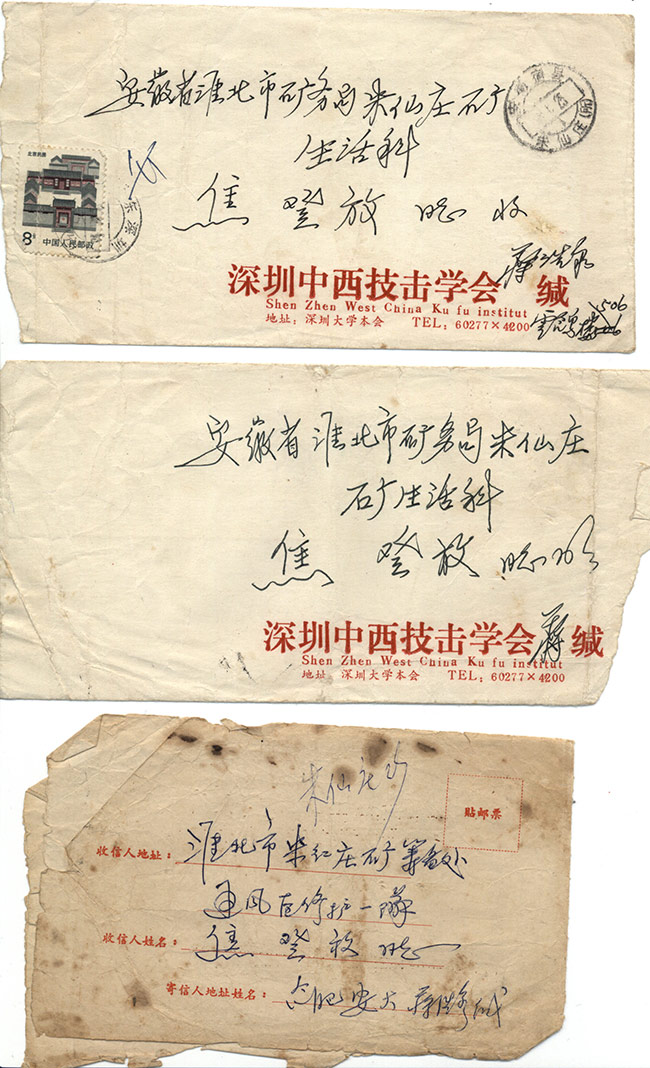 安徽省淮北市矿务局朱仙庄矿
生活科
焦登放 同志 收
北京民居
8分 中国人民邮政
深圳中西技击学会 缄
Shen Zhen West China Ku fu institut
地址：深圳大学本会 TEL：60277×4200
506
安徽省淮北市矿务局朱仙庄
矿生活科
焦登放 同志收
深圳中西技击学会 蒋 缄
Shen Zhen West China Ku fu institut
地址：深圳大学本会 TEL：60277×4200
朱仙庄矿
贴邮票
收信人地址：淮北市朱仙庄矿筹备处
通风区修护一队
收信人姓名：焦登放 同志
寄信人地址姓名：合肥安大 缄